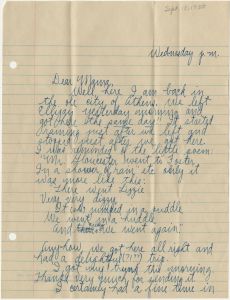 Wednesday p.m.
Dear Mama,
Well, here I am back in
the ole city of Athens. We left
yesterday morning and
got here the same day. It started
raining just after we left and
stopped just after we got here.
I was reminded of the little poem:
"Mr. Gloucester went to Foster
In a shower of rain" etc only it
was more like this:
There went Lizzie
Very very dizzy
It only rained in a puddle
We went in a huddle
And we went again!
Anyhow, we got here all right and
had a delightful(?!!?) trip.
I got my! trunk this morning.
Thanks very much for sending it.
I certainly had a fine time in